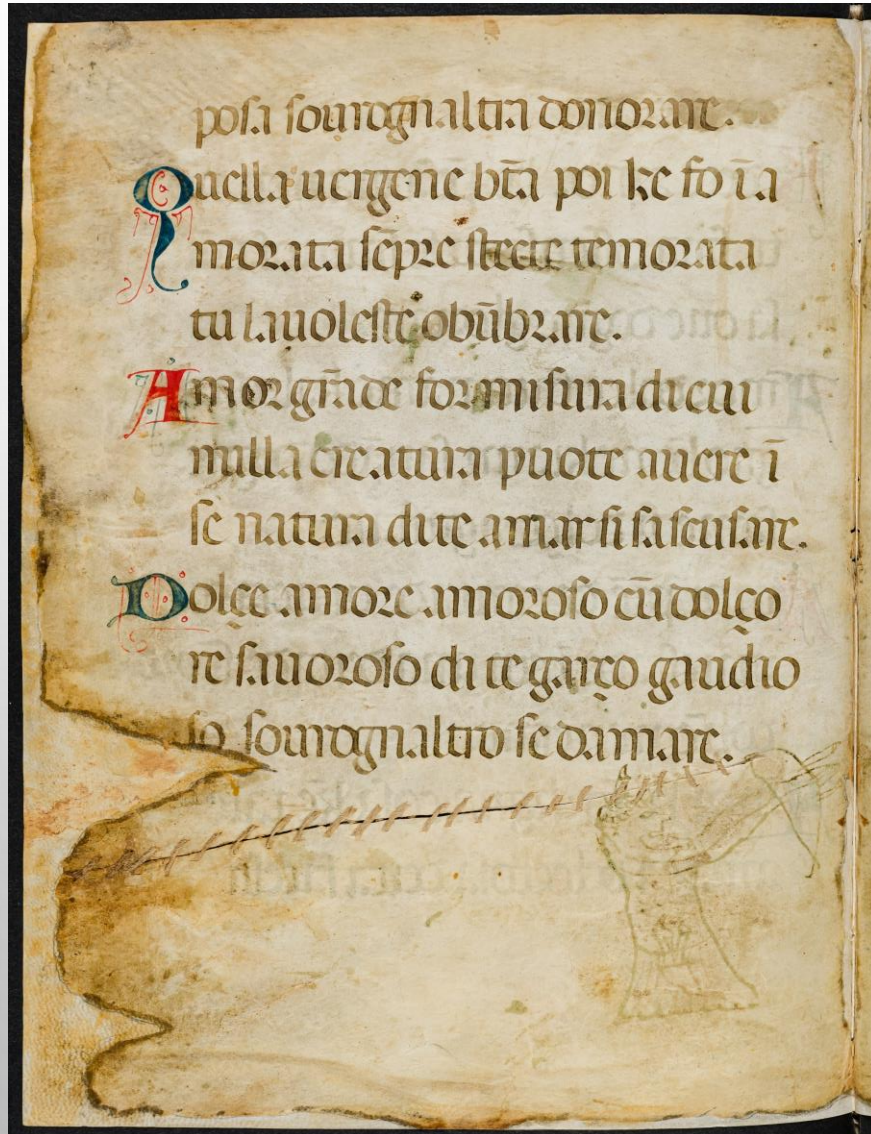 posa sourognaltra donorare.
Quella uergene bt̄a poi ke fo ī a
morata sēpre stecte temorata
tu lauoleste obūbrare.
Amor gr̄ade for misura di cui
nulla creatura puote auere ī
se natura di te amar si sa scusare.
Dolçe amore amoroso cū dolço
re sauoroso di te garço gaudio
so sourognaltro se damare.